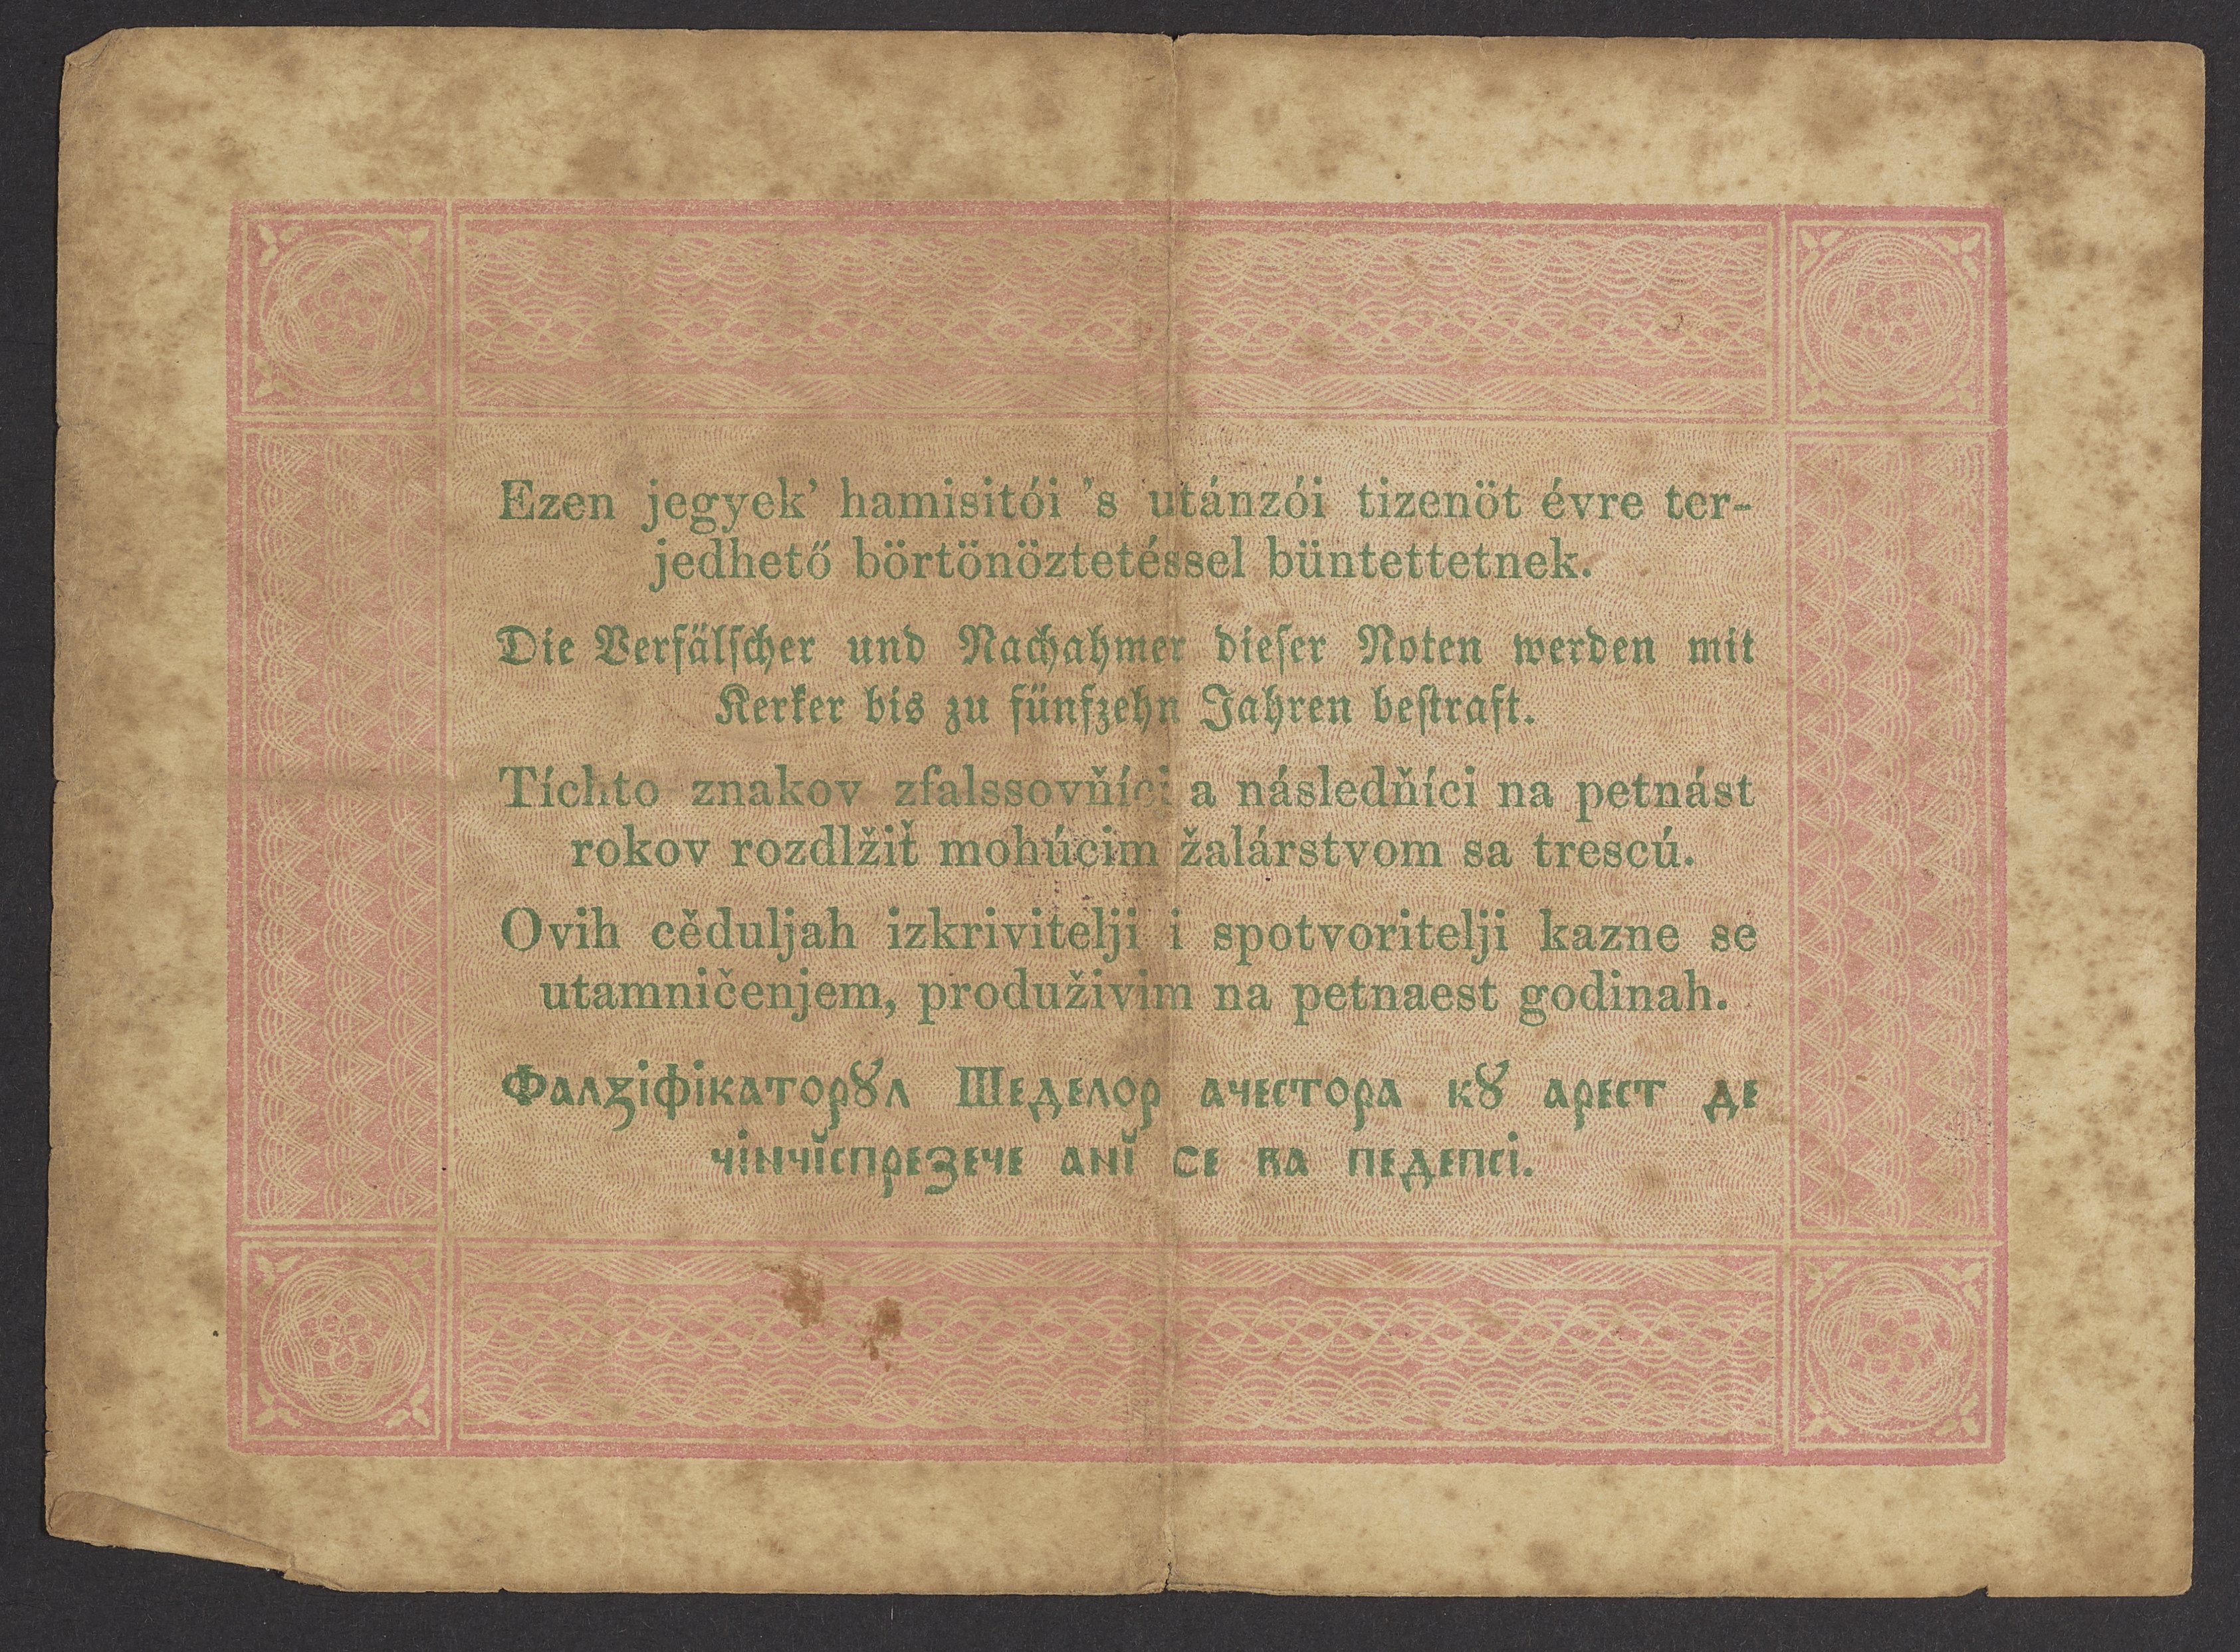 Ezen jegyek’ hamisitói ’s utánzói tizenöt évre ter-
jedhető börtönöztetéssel büntettetnek.
Die Verfälſcher und Nachahmer dieſer Noten werden mit
Kerker bis zu fünfzehn Jahren beſtraft.
Tíchto znakov zfalssovňíci a následňíci na petnást
rokov rozdlžiť mohúcim žalárstvom sa trescú.
Ovih cěduljah izkrivitelji i spotvoritelji kazne se
utamničenjem, produživim na petnaest godinah.
Фалѯіфікаторꙋл Шеделор ачестора кꙋ арест де
чінчĭспрезече анĭ се ва педепсі.